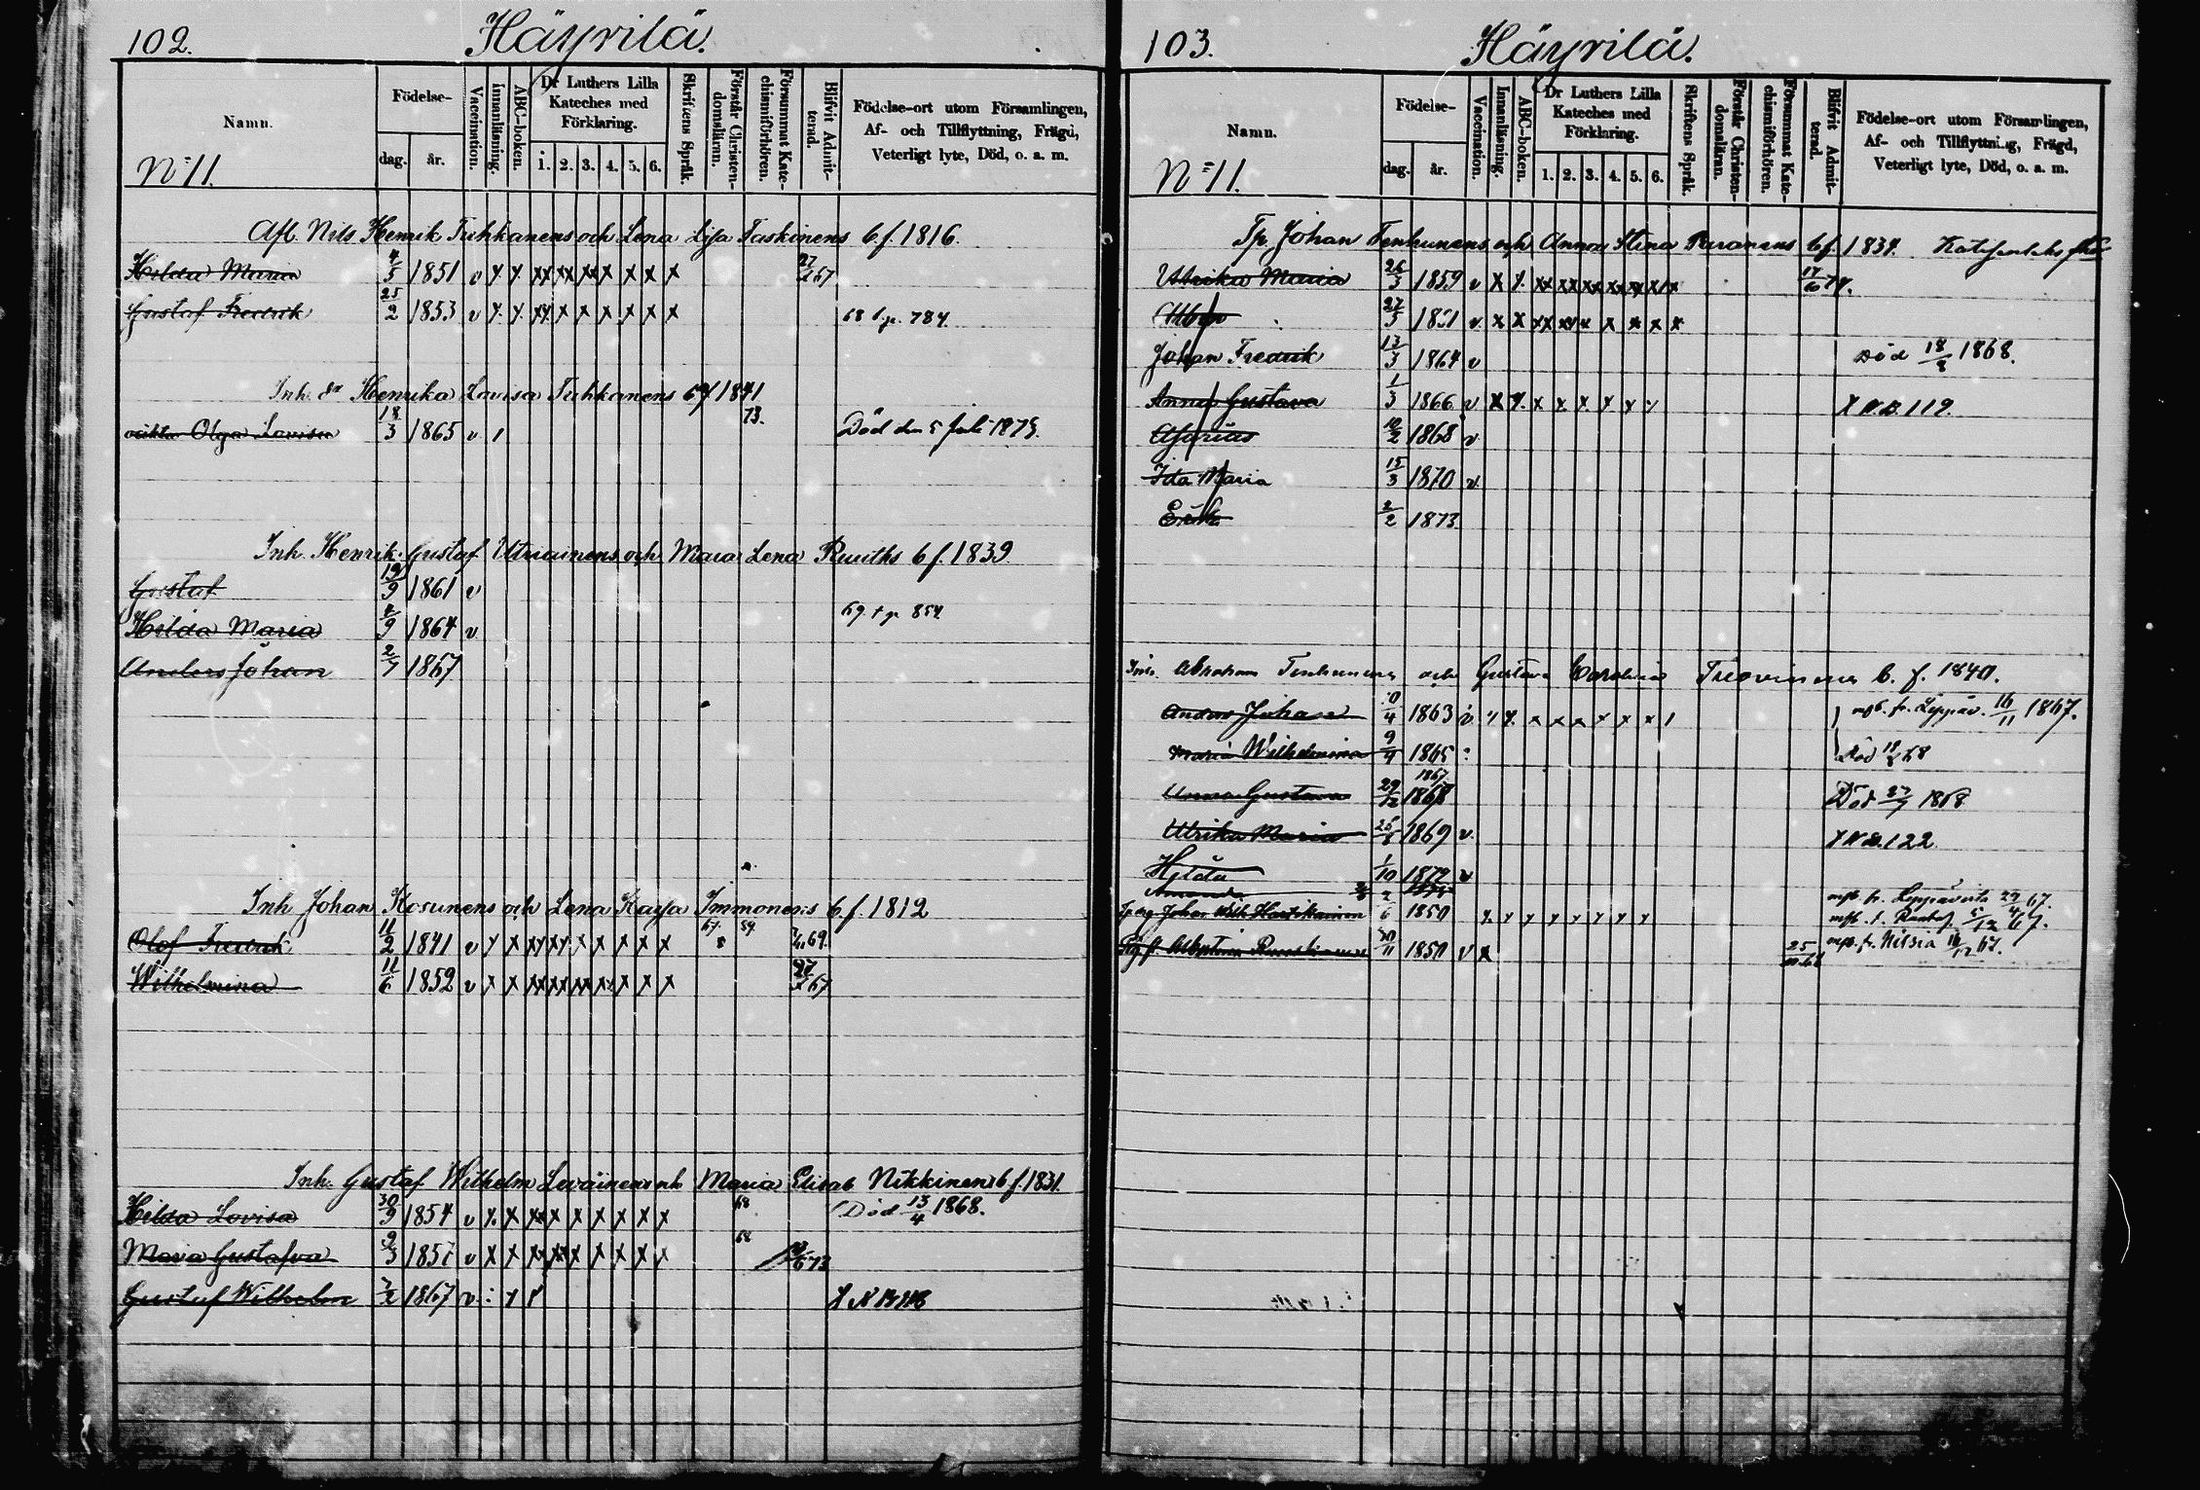 102. Häyrilä.
Namn.
N:11.
Födelse-
dag. år.
Vaccination.
Innanläsning.
ABC-boken.
Dr Luthers Lilla Kateches med Förklaring.
1. 2. 3. 4. 5. 6.
Skriftens Språk.
Förstår Christen-domsläran.
Försummat Kate-chismiförhören.
Blifvit Admit-terad.
Födelse-ort utom Församlingen, Af- och Tillflyttning, Frägd, Veterligt lyte, Död, o. a. m.
Afl. Nils Henrik Tuhkanens och Lena Lisa Taskinens b. f. 1816.
Hilda Maria 4/5 1851 v 67
Gustaf Fredrik 25/2 1853 v 68 t. p. 784
Inh. Henrika Lovisa Tuhkanens b. f. 1841
Olga Lovisa 18/3 1865 v 73. Död den 5 Juli 1873.
Inh. Henrik Gustaf Utriainens och Maria Lena Ruuths b. f. 1839.
Gustaf 19/9 1861 v
Hilda Maria 9 1864 v 69 t p 854
Anders Johan 2/7 1867
Inh Johan Kosunens och Lena Kajsa Immonens b. f. 1812
Olof Fredrik 11/2 1841 v 69
Wilhelmina 11/6 1852 v 67
Inh. Gustaf Wilhelm Leväinens och Maria Elisab Nikkinens b f. 1831.
Hilda Lovisa 30/9 1854 v 68 Död 13/4 1868.
Maria Gustafva 2/3 1857 v 68 73
Gustaf Wilhelm 7/2 1867 v
103. Häyrilä.
Namn.
N:11.
Födelse-
dag. år.
Vaccination.
Innanläsning.
ABC-boken.
Dr Luthers Lilla Kateches med Förklaring.
1. 2. 3. 4. 5. 6.
Skriftens Språk.
Förstår Christen-domsläran.
Försummat Kate-chismiförhören.
Blifvit Admit-terad.
Födelse-ort utom Församlingen, Af- och Tillflyttning, Frägd, Veterligt lyte, Död, o. a. m.
Tp. Johan Tenhunens och Anna Stina Puranens b f. 1834.
Ulrika Maria 26/3 1859 v
27/3 1861 v
Johan Fredrik 13/3 1864 v Död 18/2 1868.
Anna Gustava 1/3 1866 v X N.B. 119.
Asarias 10/2 1868 v
Ida Maria 15/3 1870 v
Erik 2/2 1873
Inh. Abraham Tenhunens och Gustava Carolina b. f. 1840.
Anders Johan 10/4 1863 v mfb. fr. Leppäv. 16/11 1867.
Maria Wilhelmina 9/4 1865 Död 68
Anna Gustava 29/12 1867 1868 Död 27/7 1868
Ulrika Maria 1869 v X N.B. 122
Hilda 1/10 1872 v
Amanda
Johan Wilh Hartikainen 2/6 1850 mfb. fr. Leppävirta 67.
Albertina 20/11 1850 v 25 mfb. fr. Nilsiä 16/12 67.